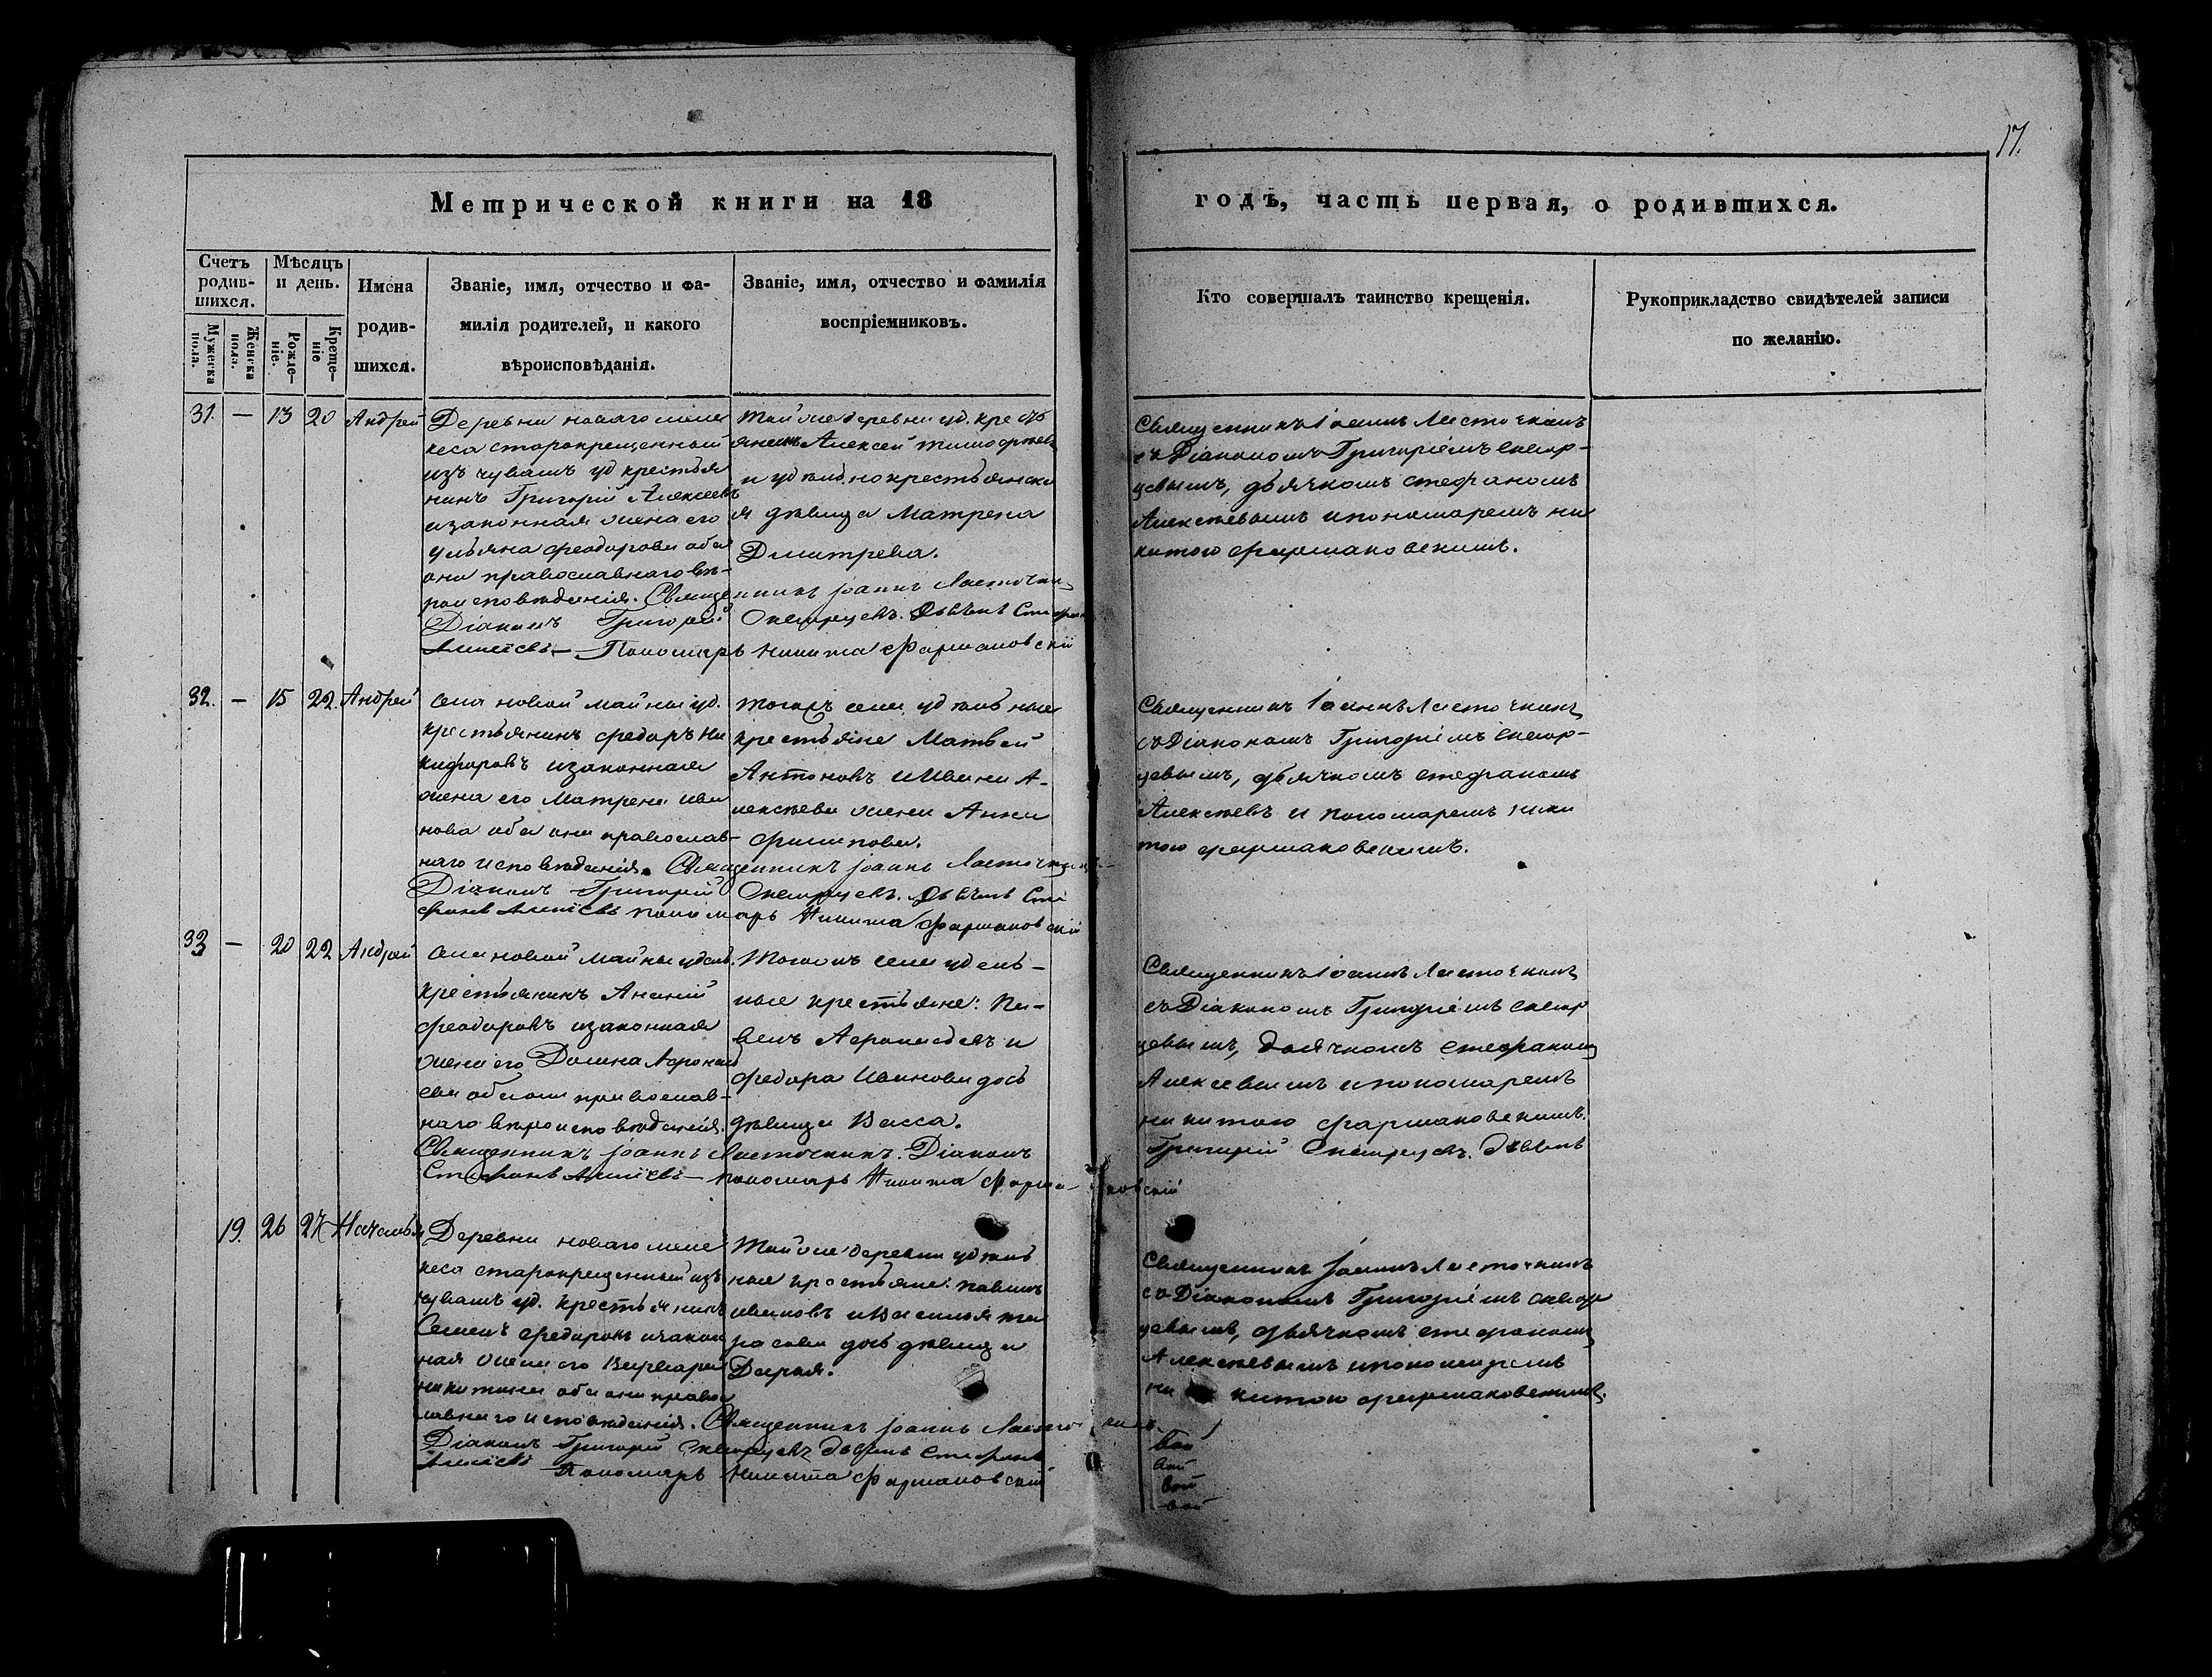 17.
Метрической книги на 18
годъ, часть первая, о родившихся.
Счетъ родив-шихся.
Мужеска пола.
Женска пола.
Мѣсяцъ и день.
Рожде-ніе.
Креще-ніе
Имена
родив-
шихся.
Званіе, имя, отчество и фа-
милія родителей, и какого
вѣроисповѣданія.
Званіе, имя, отчество и фамилія
воспріемниковъ.
Кто совершалъ таинство крещенія.
Рукоприкладство свидѣтелей записи
по желанію.
31. — 13 20 Андрей
Деревни новаго меле
кеса старокрещенный
изъ чувашъ уд крестья
нинъ Григорій Алексеевъ
изаконная жена его
ульяна феодорова оба
они православнаго вѣ-
роисповѣданія. Священникъ Іоаннъ Ласточкинъ
Діаконъ Григорій Скворцевъ. Дьячекъ Стефанъ
Алексѣевъ — Пономарь Никита Фармаковскій
Той же деревни уд. кресть
янинъ Алексей Тимофеевъ
и удѣльнокрестьянска
я дѣвица Матрена
Дмитрева.
Священникъ Іоаннъ Ласточкинъ
съ Діакономъ Григоріемъ Сквор-
цевымъ, дьячкомъ стефаномъ
Алексѣевымъ ипономаремъ ни
китою фармаковскимъ.
32. — 15 22. Андрей
Села новой майны уд.
крестьянинъ федоръ Ни
кифоровъ изаконная
жена его Матрена ива
нова оба они православ-
наго исповѣданія. Священникъ Іоаннъ Ласточкинъ
Діаконъ Григорій Скворцевъ. Дьячекъ Сте
фанъ Алексѣевъ пономарь Никита Фармаковскій
Тогожъ села удѣльные
крестьяне Матвей
Антоновъ иИвана А-
лексѣева жена Анна
филипова.
Священникъ Іоаннъ Ласточкинъ
съ Діакономъ Григоріемъ Сквор-
цевымъ, дьячкомъ стефаномъ
Алексѣевъ и пономаремъ ники
тою фармаковскимъ.
33 — 20 22 Андрей
Села новой майны удель.
крестьянинъ Ананий
феодоровъ изаконная
жена его Домна Афонась
ева оба они православ-
наго вѣроисповѣданія.
Священникъ Іоаннъ Ласточкинъ. Діаконъ
Стефанъ Алексѣевъ — пономарь Никита Фармаковскій
Тогожъ села удель-
ные крестьяне: Па-
велъ Афонасьевъ и
федора Иванова дочь
дѣвица Васса.
Священникъ Іоаннъ Ласточкинъ
съ Діакономъ Григоріемъ сквор
цевымъ, дьячкомъ стефаномъ
Алексеевымъ ипономаремъ
никитою фармаковскимъ.
Григорій Скворцевъ. Дьячекъ
19. 26 27 Наталья
Деревни новаго меле
кеса старокрещенный изъ
чувашъ уд. крестьянинъ
Семенъ федоровъ изакон
ная жена его Варвара
никитина оба они право
лавнаго исповѣданія. Священникъ Іоаннъ Ласточкинъ
Діаконъ Григорій Скворцевъ Дьячекъ Стефанъ
Алексѣевъ Пономарь Никита Фармаковскій
Той же деревни удѣль
ные крестьяне: павелъ
ивановъ
дочь дѣвица
Дарья.
Священникъ Іоаннъ Ласточкинъ
съ Діакономъ Григоріемъ сквор
цевымъ, дьячкомъ стефаномъ
Алексѣевымъ ипономаремъ
ни китою фармаковскимъ.